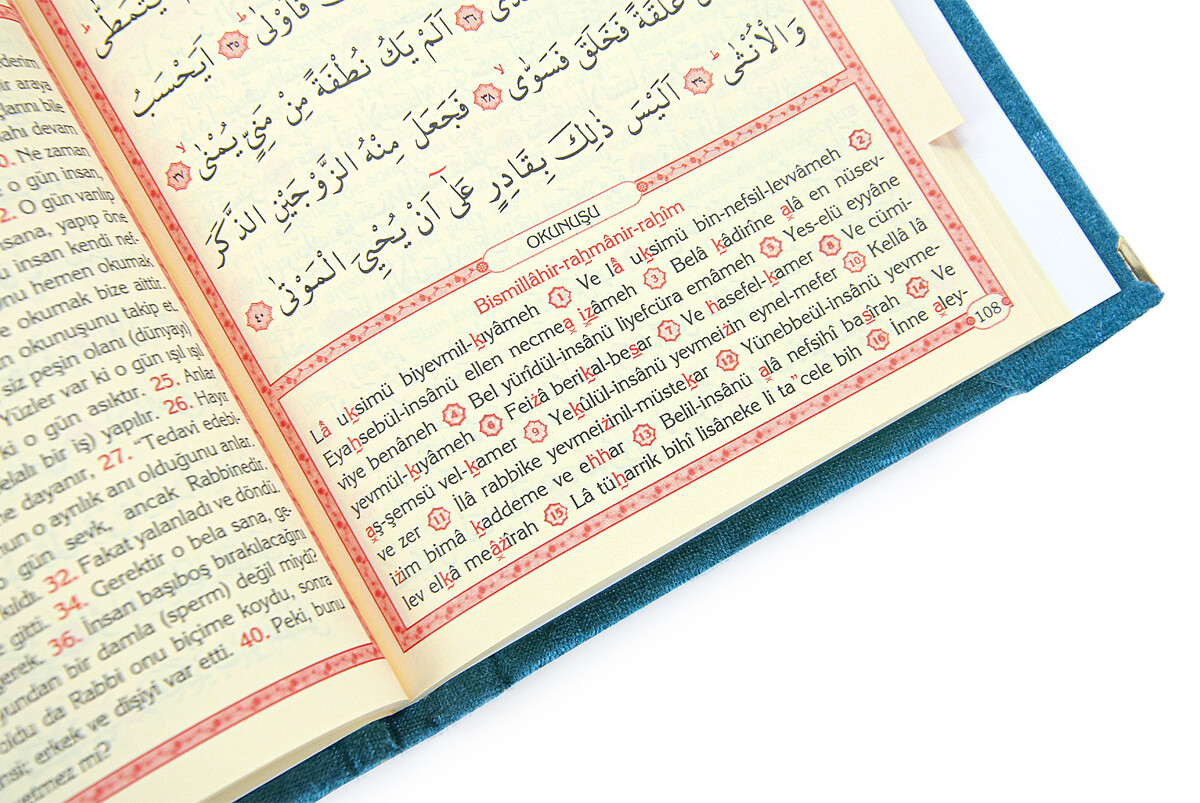 kderim
bir araya
ğlarını bile
ahı devam
0. Ne zaman
o gün insan,
2. O gün varılıp
nsana, yapıp öne
u insan kendi nef-
onu hemen okumak
e okumak bize aittir.
n okunuşunu takip et.
siz peşin olanı (dünyayı)
Yüzler var ki o gün ışıl ışıl
ki o gün asıktır. 25. Anlar
elalı bir iş) yapılır. 26. Hayır
ne dayanır, 27. "Tedavi edebi-
nun o ayrılık anı olduğunu anlar.
o gün sevk, ancak Rabbinedir.
kıldı. 32. Fakat yalanladı ve döndü.
e gitti. 34. Gerektir o bela sana, ge-
gerek. 36. İnsan başıboş bırakılacağını
yundan bir damla (sperm) değil miydi?
oldu da Rabbi onu biçime koydu, sonra
nsi; erkek ve dişiyi var etti. 40. Peki, bunu
etmez mi?
يَتَمَطّٰى
فَاَوْلٰىۙ ﴿٣٥﴾ اَيَحْسَبُ
﴿٣٦﴾ اَلَمْ يَكُ نُطْفَةً مِنْ مَنِيٍّ يُمْنٰىۙ ﴿٣٧﴾
عَلَقَةً فَخَلَقَ فَسَوّٰىۙ ﴿٣٨﴾ فَجَعَلَ مِنْهُ الزَّوْجَيْنِ الذَّكَرَ
وَالْاُنْثٰىۜ ﴿٣٩﴾ اَلَيْسَ ذٰلِكَ بِقَادِرٍ عَلٰٓى اَنْ يُحْيِيَ الْمَوْتٰى ﴿٤٠﴾
OKUNUŞU
Bismillâhir-rahmânir-rahîm
Lâ uksimü biyevmil-kıyâmeh 1 Ve lâ uksimü bin-nefsil-levvâmeh 2
Eyahsebül-insânü ellen necmea izâmeh 3 Belâ kâdirîne alâ en nüsev-
viye benâneh 4 Bel yürîdül-insânü liyefcüra emâmeh 5 Yes-elü eyyâne
yevmül-kıyâmeh 6 Feizâ berikal-besar 7 Ve hasefel-kamer 8 Ve cümi-
aş-şemsü vel-kamer 9 Yekûlül-insânü yevmeizin eynel-mefer 10 Kellâ lâ
ve zer 11 İlâ rabbike yevmeizinil-müstekar 12 Yünebbeül-insânü yevme-
izim bimâ kaddeme ve ehhar 13 Belil-insânü alâ nefsihî basîrah 14 Ve
lev elkâ meâzîrah 15 Lâ tüharrik bihî lisâneke li ta"cele bih 16 İnne aley-
108